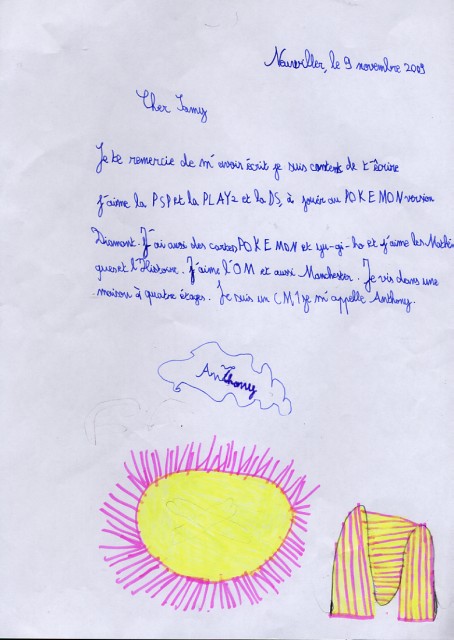 Neuviller, le 9 novembre 2009
Cher Tamy
Je te remercie de m'avoir écrit je suis content de t'écrire
j'aime la PSP et la PLAY2 et la DS, à jouér au POKEMON version
Diamant. J'ai ausi des cartes POKEMON et yu-gi-ho et j'aime les Mathé
ques et l'Histoire. J'aime l'OM et aussi Manchester. Je vis dans une
maison à quatre étages. Je suis un CM1 je m'appelle Anthony.
Anthony